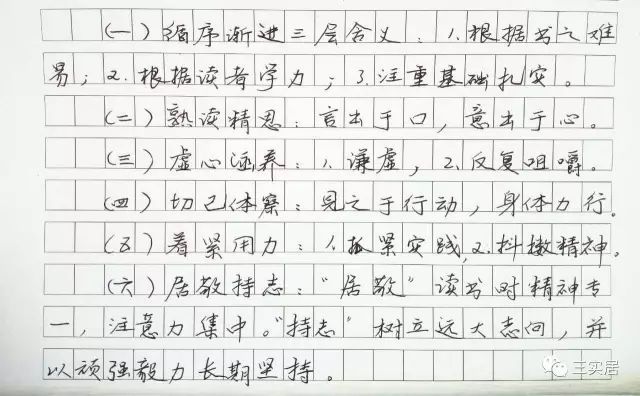 (一)循序渐进三层含义：1.根据书之难
易；2.根据读者学力；3.注重基础扎实。
(二)熟读精思：言出于口，意出于心。
(三)虚心涵养：1.谦虚，2.反复咀嚼。
(四)切己体察：见之于行动，身体力行。
(五)着紧用力：1.抓紧实践，2.抖擞精神。
(六)居敬持志："居敬"读书时精神专
一，注意力集中。"持志"树立远大志向，并
以顽强毅力长期坚持。
三实居